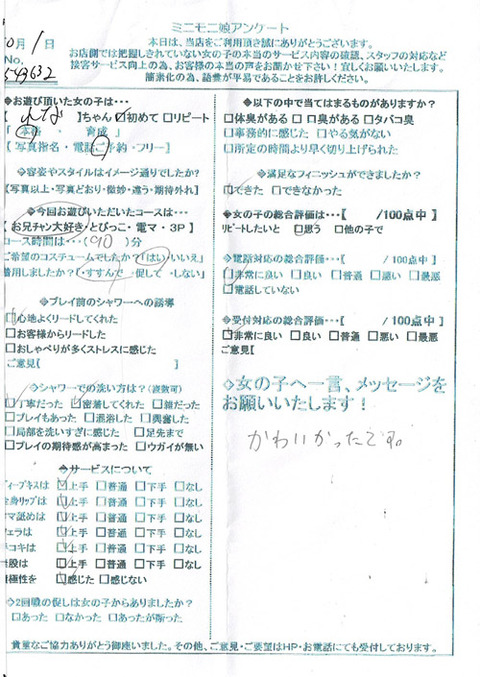 ミニモニ娘アンケート
0月1日
No.
543632
本日は、当店をご利用頂き誠にありがとうございます。
お店側では把握しきれていない女の子の本当のサービス内容の確認、スタッフの対応など
接客サービス向上の為、お客様の本当の声をお聞かせ下さい！宜しくお願いいたします。
簡素化の為、語彙が平易であることをお許しください。
◆お遊び頂いた女の子は…
】ちゃん □初めて □リピート
「本格・育成」
【写真指名・電話ご予約・フリー】
◇容姿やスタイルはイメージ通りでしたか?
【写真以上・写真どおり・微妙・違う・期待外れ】
◆今回お遊びいただいたコースは…
【お兄チャン大好き・とびっこ・電マ・3P】
コース時間は…(90)分
ご希望のコスチュームでしたか?「はい・いいえ」
着用しましたか?「すすんで・促して・しない」
◆プレイ前のシャワーへの誘導
□心地よくリードしてくれた
□お客様からリードした
□おしゃべりが多くストレスに感じた
ご意見【 】
◇シャワーでの洗い方は?(複数可)
□丁寧だった □密着してくれた □雑だった
□プレイもあった □混浴した □興奮した
□局部を洗いすぎに感じた □足先まで
□プレイの期待感が高まった □ウガイが無い
◆サービスについて
ディープキスは □上手 □普通 □下手 □なし
全身リップは □上手 □普通 □下手 □なし
タマ舐めは □上手 □普通 □下手 □なし
フェラは □上手 □普通 □下手 □なし
手コキは □上手 □普通 □下手 □なし
素股は □上手 □普通 □下手 □なし
積極性を □感じた □感じない
◇2回戦の促しは女の子からありましたか?
□あった □なかった □あったが断った
◆以下の中で当てはまるものがありますか?
□体臭がある □口臭がある □タバコ臭
□事務的に感じた □やる気がない
□所定の時間より早く切り上げられた
◇満足なフィニッシュができましたか?
□できた □できなかった
◆女の子の総合評価は…【 /100点中】
リピートしたいと □思う □他の子で
◇電話対応の総合評価…【 /100点中】
□非常に良い □良い □普通 □悪い □最悪
□電話していない
◆受付対応の総合評価…【 /100点中】
□非常に良い □良い □普通 □悪い □最悪
ご意見【 】
◇女の子へ一言、メッセージを
お願いいたします！
かわいかったです。
貴重なご協力ありがとう御座いました。その他、ご意見・ご要望はHP・お電話にても受付しております。